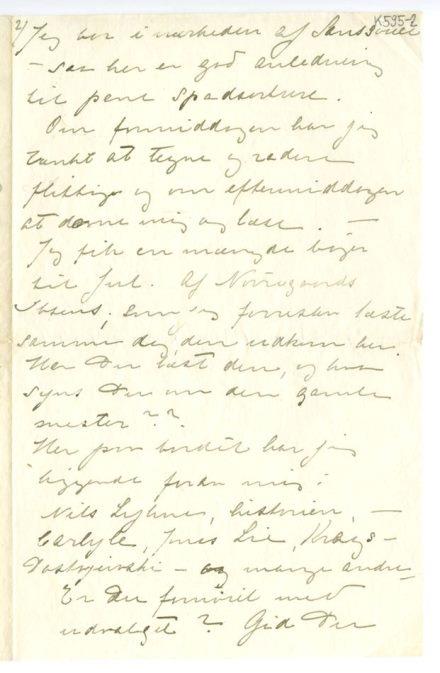 2) K595-2
Jeg bor i nærheden af Sanssouci
- saa her er god anledning
til pene spadserture.
Om formiddagen har jeg
tænkt at tegne og radere
flittigt og om eftermiddagen
at dovne mig og læse. -
Jeg fik en mængde bøger
til Jul. Af Nörregaards
Ibsens, som jeg forresten læste
samme dag den udkom her.
Har Du læst den, og hva
syns Du om den gamle
mester??
Her paa bordet har jeg
liggende foran mig:
Niels Lyhne, historien, -
Carlyle, Jonas Lie, Krags -
Dostojevski - og mange andre
Er Du fornöiet med
udvalget? Gid Du